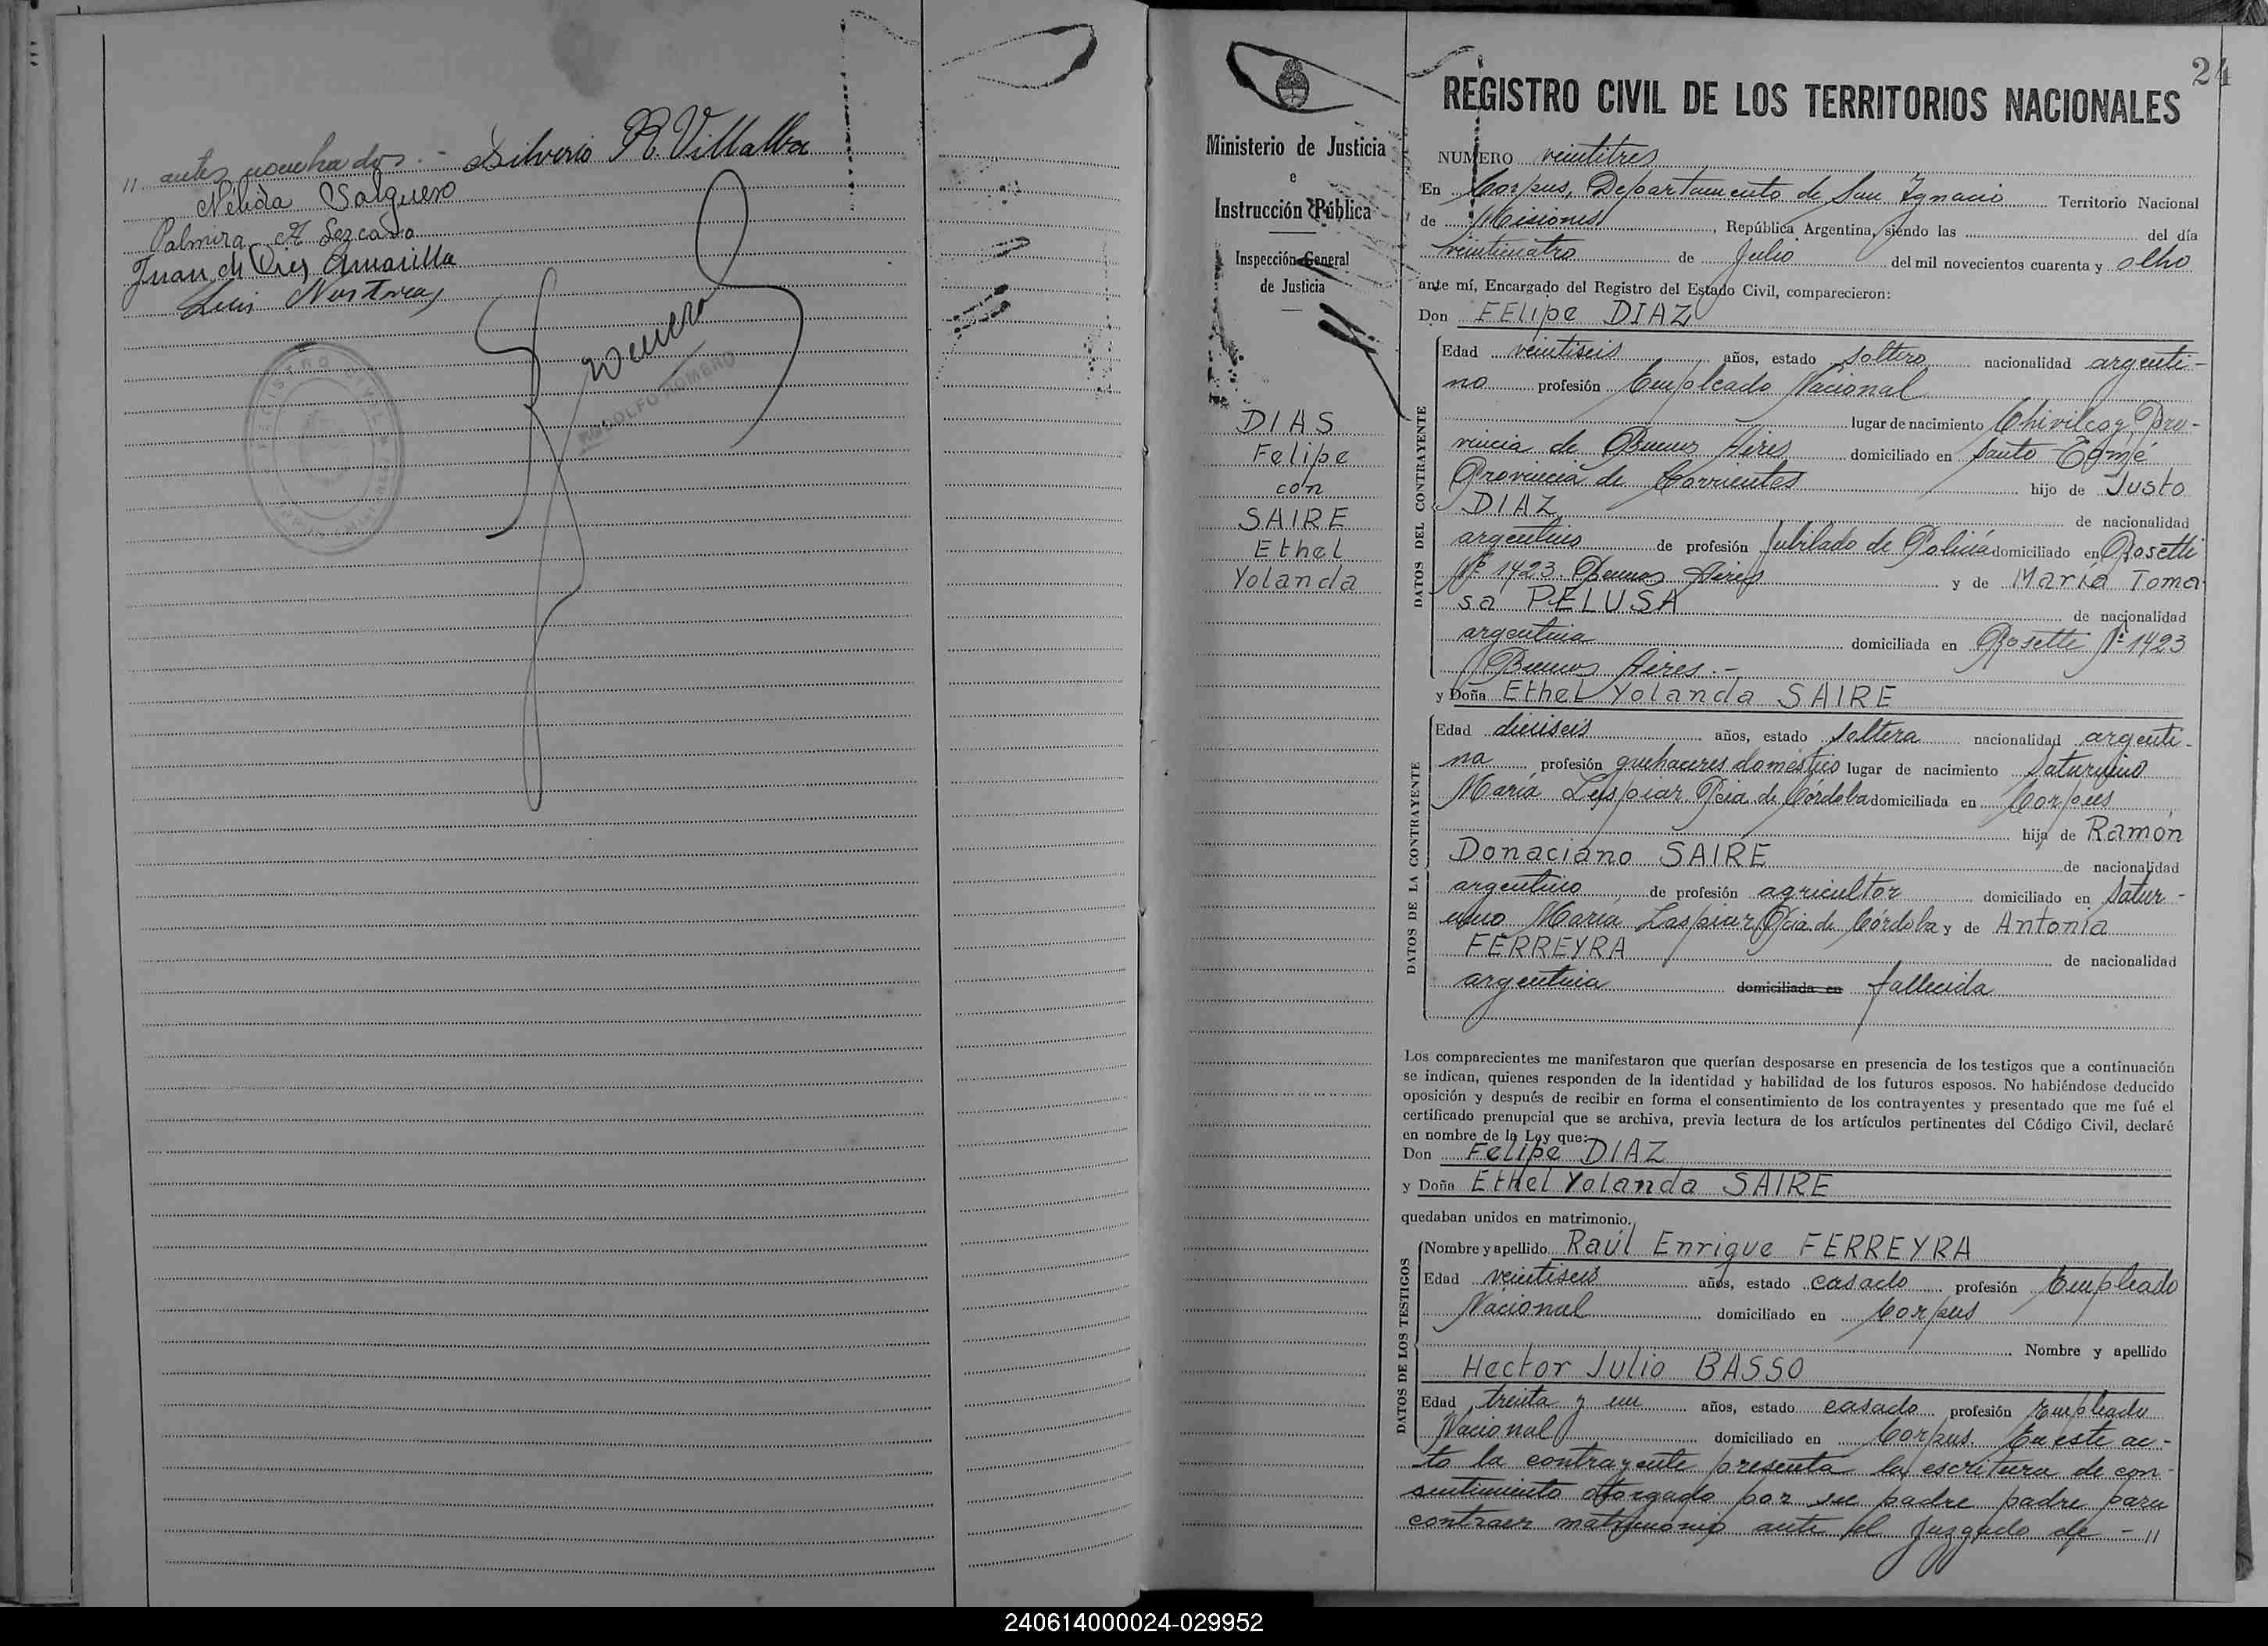 " antes nombrados.- Silverio R Villalba
Nélida Salguero
Palmira A Lezcano
Juan de Dios Amarilla
Luis
REGISTRO CIVIL
RODOLFO ROMERO
24
Ministerio de Justicia
e
Instrucción Pública
Inspección General
de Justicia
DIAS
Felipe
con
SAIRE
Ethel
Yolanda
REGISTRO CIVIL DE LOS TERRITORIOS NACIONALES
NUMERO veintitres
En Corpus, Departamento de San Ignacio Territorio Nacional
de Misiones, República Argentina, siendo las del día
veinticuatro de Julio del mil novecientos cuarenta y ocho
ante mí, Encargado del Registro del Estado Civil, comparecieron:
Don FElipe DIAZ
DATOS DEL CONTRAYENTE
Edad veintiseis años, estado soltero nacionalidad argenti-
no profesión Empleado Nacional
lugar de nacimiento Chivilcoy, Pro-
vincia de Buenos Aires domiciliado en Santo Tomé
Provincia de Corrientes hijo de Justo
DIAZ de nacionalidad
argentino de profesión Jubilado de Policía domiciliado en Rosetti
Nº 1423 Buenos Aires y de María Toma
sa PELUSA de nacionalidad
argentina domiciliada en Rosetti Nº 1423
Buenos Aires.-
y Doña Ethel Yolanda SAIRE
DATOS DE LA CONTRAYENTE
Edad dieciseis años, estado soltera nacionalidad argenti-
na profesión quehaceres domestico lugar de nacimiento Saturnino
María Laspiur Pcia. de Córdoba domiciliada en Corpus
hija de Ramón
Donaciano SAIRE de nacionalidad
argentino de profesión agricultor domiciliado en Satur-
nino María Laspiur Pcia de Córdoba y de Antonia
FERREYRA de nacionalidad
argentina domiciliada en fallecida
Los comparecientes me manifestaron que querían desposarse en presencia de los testigos que a continuación
se indican, quienes responden de la identidad y habilidad de los futuros esposos. No habiéndose deducido
oposición y después de recibir en forma el consentimiento de los contrayentes y presentado que me fué el
certificado prenupcial que se archiva, previa lectura de los artículos pertinentes del Código Civil, declaré
en nombre de la Ley que:
Don Felipe DIAZ
y Doña Ethel Yolanda SAIRE
quedaban unidos en matrimonio.
DATOS DE LOS TESTIGOS
Nombre y apellido Raúl Enrique FERREYRA
Edad veintiseis años, estado casado profesión Empleado
Nacional domiciliado en Corpus
Nombre y apellido
Hector Julio BASSO
Edad treinta y un años, estado casado profesión Empleado
Nacional domiciliado en Corpus. En este ac-
to la contrayente presenta la escritura de con-
sentimiento otorgado por su padre padre para
contraer matrimonio ante el Juzgado de -"
240614000024-029952